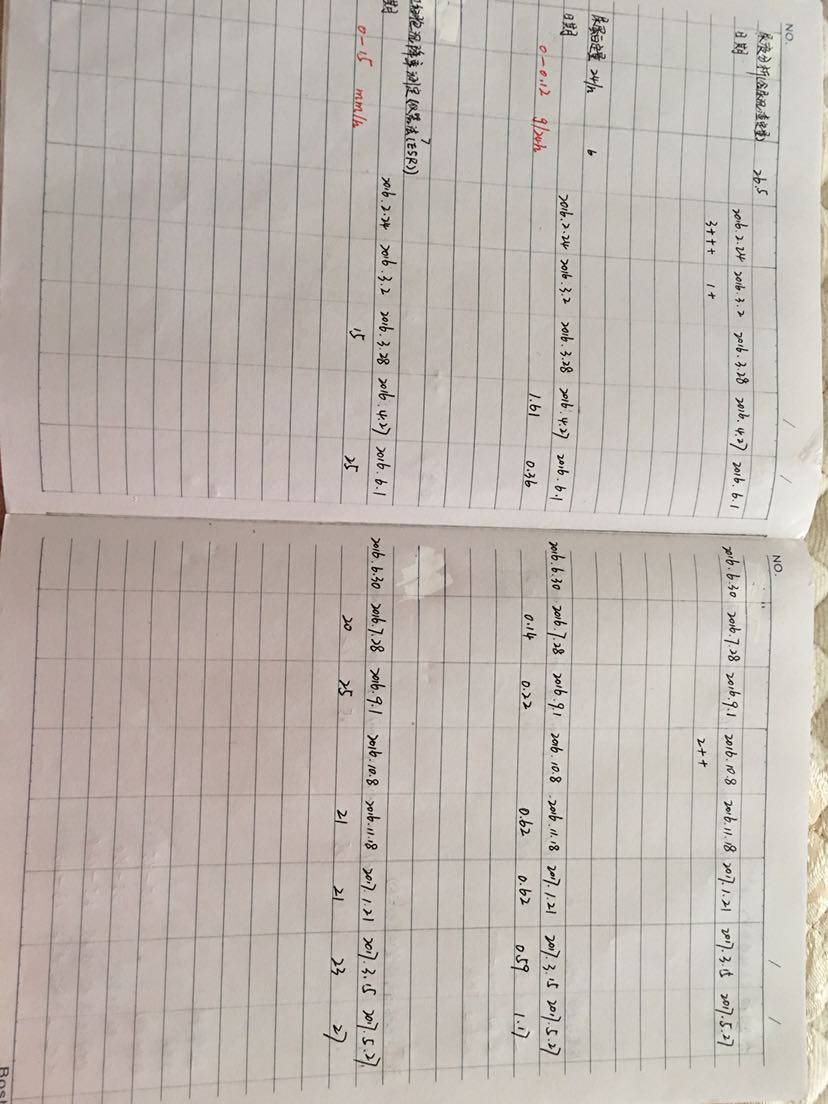 NO.
尿液分析
26.5
日期 2016.2.24 2016.3.2 2016.3.28 2016.4.27 2016.6.1
3+++ 1+
尿蛋白定量 24/h 6
日期 2016.2.24 2016.3.2 2016.3.28 2016.4.27 2016.6.1
0-0.12 g/24h 1.61 0.36
细胞沉降率测定(仪器法(ESR))
期 2016.2.24 2016.3.2 2016.3.28 2016.4.27 2016.6.1
0-15 mm/h 15 25
NO.
2016.6.30 2016.7.28 2016.9.1 2016.10.8 2016.11.18 2017.1.21 2017.3.15 2017.5.27
2++
2016.6.30 2016.7.28 2016.9.1 2016.10.8 2016.11.18 2017.1.21 2017.3.15 2017.5.27
0.14 0.22 0.62 0.62 0.59 1.17
2016.6.30 2016.7.28 2016.9.1 2016.10.8 2016.11.18 2017.1.21 2017.3.15 2017.5.27
20 25 21 21 23 27